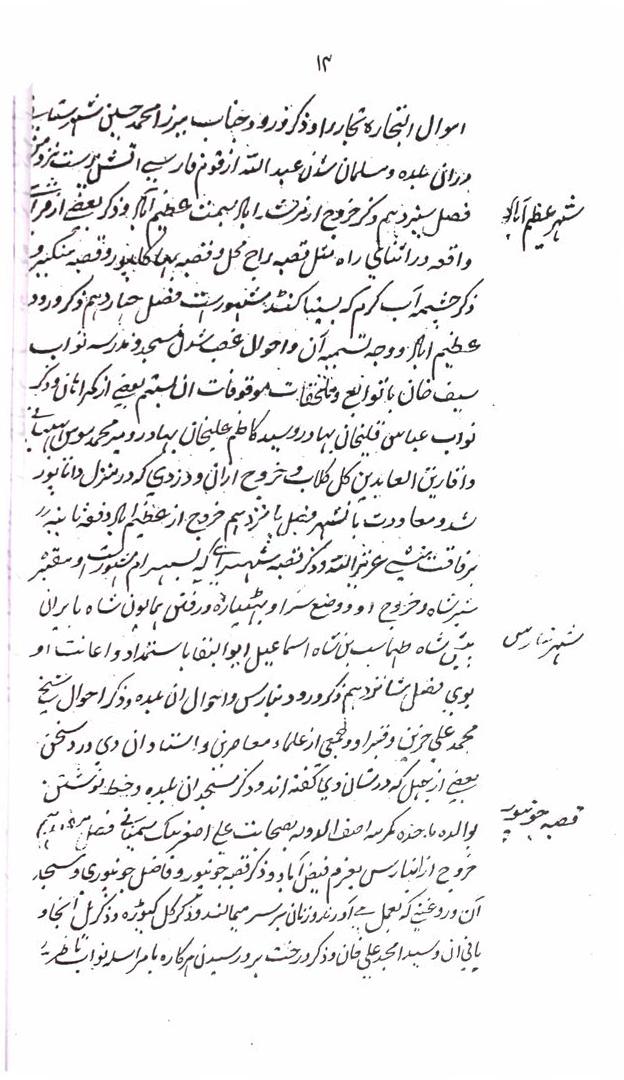 ۱۳
احوال التجار کا تجار را و ذکر ورود جناب میرزا محمد حسین شهرستانی
دران بلده و مسلمان شدن عبد الله از قوم فارسی اتش پرست
فصل سیزدهم ذکر خروج از مرشد اباد بسمت عظیم اباد و ذکر بعضی از
واقعه در اثنای راه مثل قصبه راج محل و قصبه بهاکلپور و قصبه منکیر و
ذکر چشمه آب کرم که بسیتا کند مشهورست فصل چهاردهم ذکر ورود
عظیم اباد و وجه تسمیه آن و احوال غصب شدن مسجد و مدرسه نواب
سیف خان با توابع و ملحقات موقوفات ان بلستم بعضی از کمراهان و ذکر
نواب عباس قلیخان بهادر و سید کاظم علیخان بهادر و میر محمد
و اقا زین العابدین کل کلاب و خروج از ان و دزدی که در منزل داناپور
شد و معاودت باشهر فصل پانزدهم خروج از عظیم اباد دفعه ثانیه
برفاقت عزیز الله و ذکر قصبه شهسرای که بسهسرام مشهورست و مقبره
شیرشاه و خروج او و وضع سرا و بهتیاره و رفتن همایون شاه بایران
پیش شاه طهماسب بن شاه اسماعیل ابو البقا باستمداد و اعانت او
بوی فصل شانزدهم ذکر ورود بنارس و احوال ان بلده و ذکر احوال شیخ
محمد علی حزین و قبر او و جمعی از علماء معاصرین و استادان وی و رد سخن
بعضی از جهل که در شان وی گفته اند و ذکر مسجد ان بلده و خط نوشتن
بوالده ماجده مکرمه اصف الدوله بصحابت علی اصغر بیک سمنانی فصل هفدهم
خروج از بنارس بعزم فیض آباد و ذکر قصبه جونپور و فاضل جونپوری و مسجد
آن و روغنی که بعمل می آورند و زنان بر سر میمالند و ذکر کل کیوره و ذکر پل آنجا و
بانی ان و سید امجد علی خان و ذکر درخت بر و رسیدن هرکاره با مراسله نواب ناظر
شهر عظیم آباد
شهر بنارس
قصبه جونپور